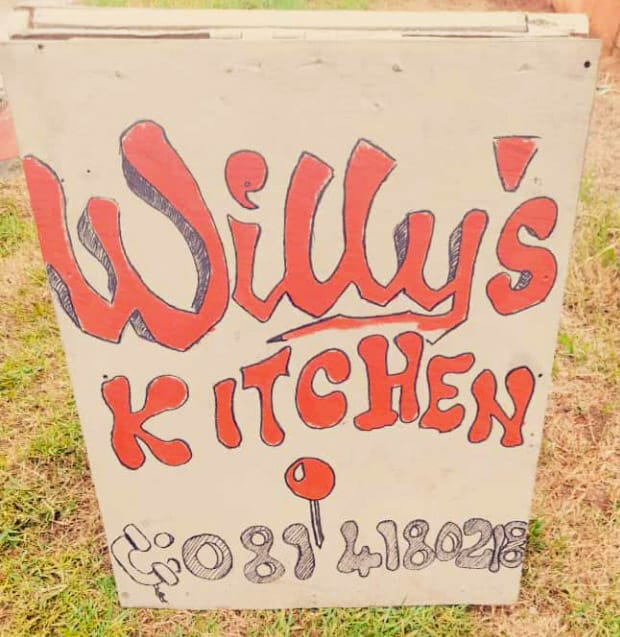 Willy's
KITCHEN
081 4180218